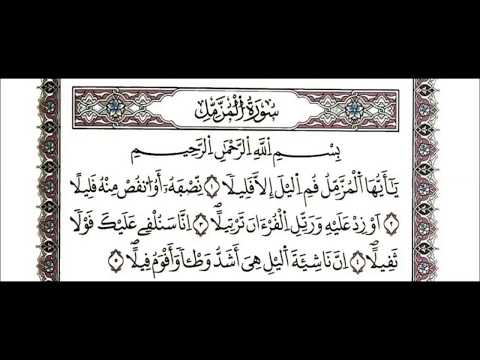 سُورَةُ اُ۬لْمُزَّمِّلِ
بِسْمِ اِ۬للَّهِ اِ۬لرَّحْمَٰنِ اِ۬لرَّحِيمِ
يَٰٓأَيُّهَا اَ۬لْمُزَّمِّلُ قُمِ اِ۬ليْلَ إِلَّا قَلِيلاٗ ١ نِّصْفَهُۥٓ أَوُ اُ۟نقُصْ مِنْهُ قَلِيلًا
٢ اَوْ زِدْ عَلَيْهِ وَرَتِّلِ اِ۬لْقُرْءَانَ تَرْتِيلًاۖ ٣ اِنَّا سَنُلْقِے عَلَيْكَ قَوْلاٗ
ثَقِيلًاۖ ٤ اِنَّ نَاشِئَةَ اَ۬ليْلِ هِيَ أَشَدُّ وَطْـٔاٗ وَأَقْوَمُ قِيلًاۖ ٥